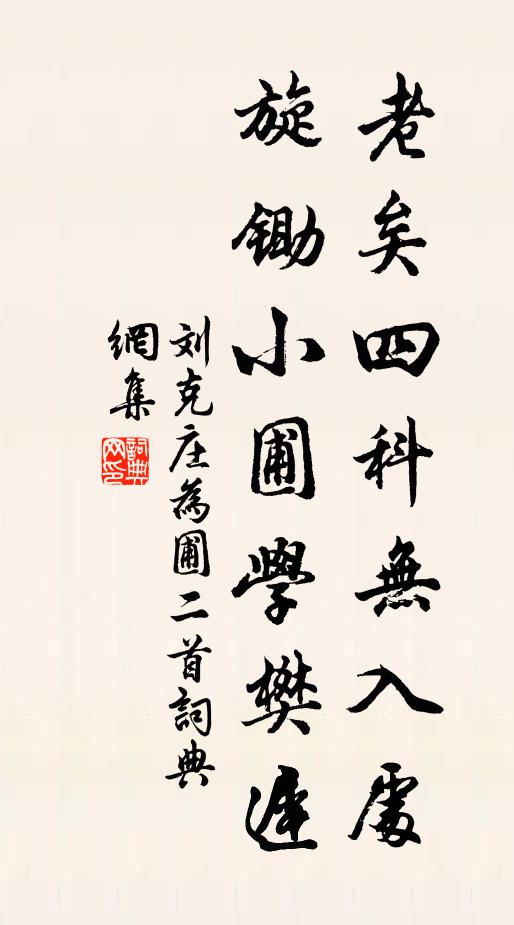 老矣四科無入處
旋鋤小圃學樊遲
刘克庄為圃二首詞典
網集
詞典
网印